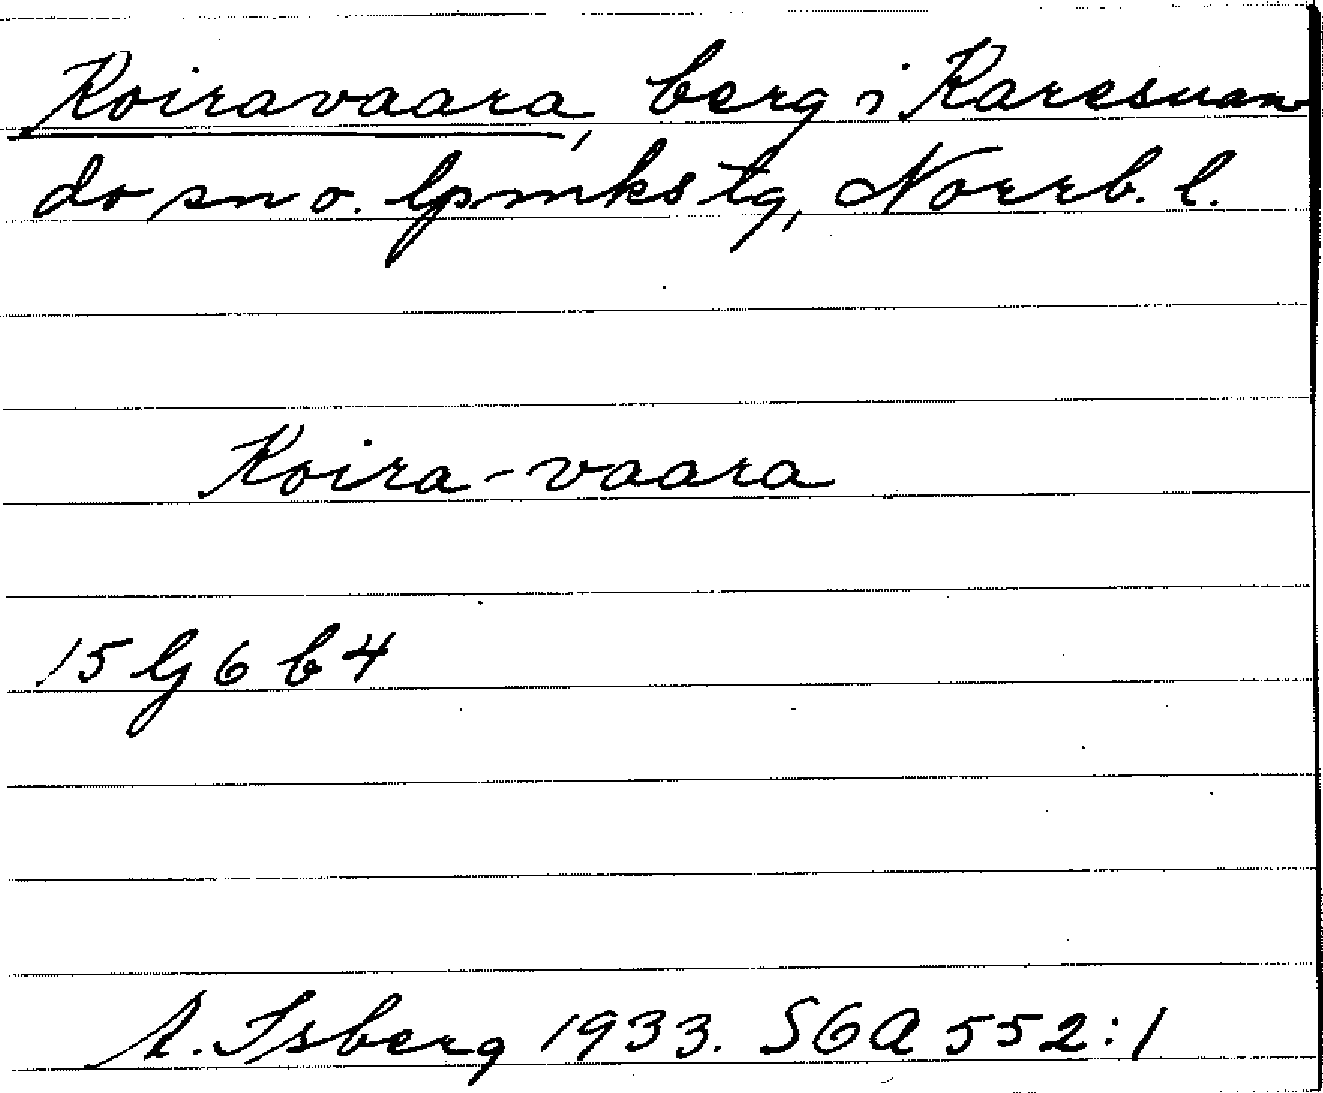 Koiravaara, berg i Karesuan
do sn o. lpmks tg, Norrb. l.
Koira-vaara
15 G 6 b 4
A. Isberg 1933. SGA 552:1